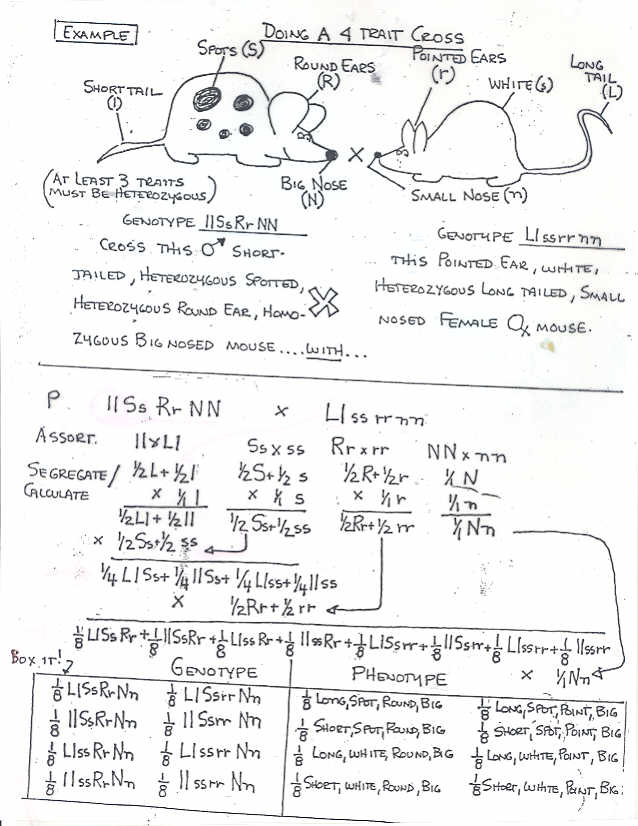 EXAMPLE
DOING A 4 TRAIT CROSS
SPOTS (S)
ROUND EARS
(R)
POINTED EARS
(r)
WHITE (s)
LONG
TAIL
(L)
SHORT TAIL
(l)
X
(AT LEAST 3 TRAITS
MUST BE HETEROZYGOUS)
BIG NOSE
(N)
SMALL NOSE (n)
GENOTYPE llSsRrNN
CROSS THIS ♂ SHORT-
TAILED, HETEROZYGOUS SPOTTED,
HETEROZYGOUS ROUND EAR, HOMO-
ZYGOUS BIG NOSED MOUSE .... WITH ...
X
GENOTYPE Llssrrnn
THIS POINTED EAR, WHITE,
HETEROZYGOUS LONG TAILED, SMALL
NOSED FEMALE ♀ MOUSE.
P llSsRrNN x Llssrrnn
ASSORT. ll x Ll Ss x ss Rr x rr NN x nn
SEGREGATE/ 1/2L + 1/2l 1/2S + 1/2 s 1/2R + 1/2r 1/1 N
CALCULATE x 1/1 l x 1/1 s x 1/1 r 1/1 n
1/2Ll + 1/2ll 1/2Ss + 1/2ss 1/2Rr + 1/2 rr 1/1 Nn
x 1/2Ss + 1/2 ss
1/4 LlSs + 1/4 llSs + 1/4 Llss + 1/4 llss
x 1/2Rr + 1/2 rr
1/8 LlSsRr + 1/8 llSsRr + 1/8 LlssRr + 1/8 llssRr + 1/8 LlSsrr + 1/8 llSsrr + 1/8 Llssrr + 1/8 llssrr
x 1/1Nn
BOX IT!
GENOTYPE PHENOTYPE
1/8 LlSsRrNn 1/8 LlSsrr Nn 1/8 LONG, SPOT, ROUND, BIG 1/8 LONG, SPOT, POINT, BIG
1/8 llSsRrNn 1/8 llSsrr Nn 1/8 SHORT, SPOT, ROUND, BIG 1/8 SHORT, SPOT, POINT, BIG
1/8 LlssRrNn 1/8 Llssrr Nn 1/8 LONG, WHITE, ROUND, BIG 1/8 LONG, WHITE, POINT, BIG
1/8 llssRrNn 1/8 llssrr Nn 1/8 SHORT, WHITE, ROUND, BIG 1/8 SHORT, WHITE, POINT, BIG